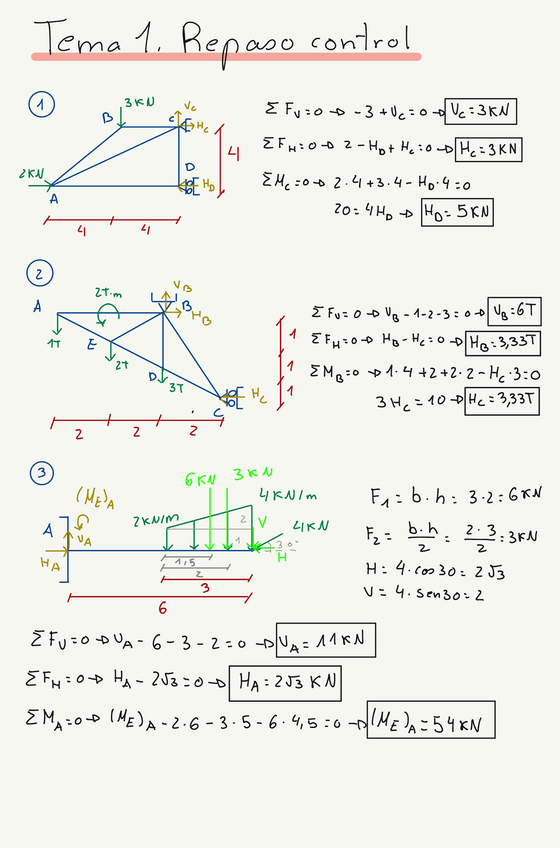 Tema 1. Repaso control
1
3KN
Vc
B
C
Hc
2KN
D
4
HD
A
4 4
ΣFv=0 → -3+Vc=0 → Vc=3KN
ΣFH=0 → 2-HD+Hc=0 → Hc=3KN
ΣMc=0 → 2·4+3·4-HD·4=0
20=4HD → HD=5KN
2
2T·m
VB
A
B
HB
1T
E
2T
D
3T
Hc
C
1
1
1
2 2 2
ΣFv=0 → VB-1-2-3=0 → VB=6T
ΣFH=0 → HB-Hc=0 → HB=3,33T
ΣMB=0 → 1·4+2+2·2-Hc·3=0
3Hc=10 → Hc=3,33T
3
6KN 3KN
(ME)A
4KN/m
2KN/m
2
V
4KN
A
VA
1
30°
HA
H
1,5
2
3
6
F1 = b·h = 3·2=6KN
F2 = b·h/2 = 2·3/2 = 3KN
H = 4·cos30 = 2√3
V = 4·sen30 = 2
ΣFv=0 → VA-6-3-2=0 → VA=11KN
ΣFH=0 → HA-2√3=0 → HA=2√3 KN
ΣMA=0 → (ME)A-2·6-3·5-6·4,5=0 → (ME)A=54KN